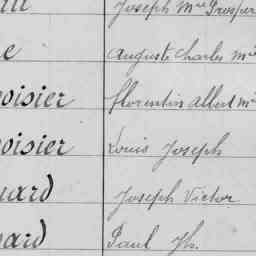 Joseph Mie Prosper
e Auguste Charles Mie
oisier Florentin Albert M
oisier Louis Joseph
uard Joseph Victor
ard Paul Jh.